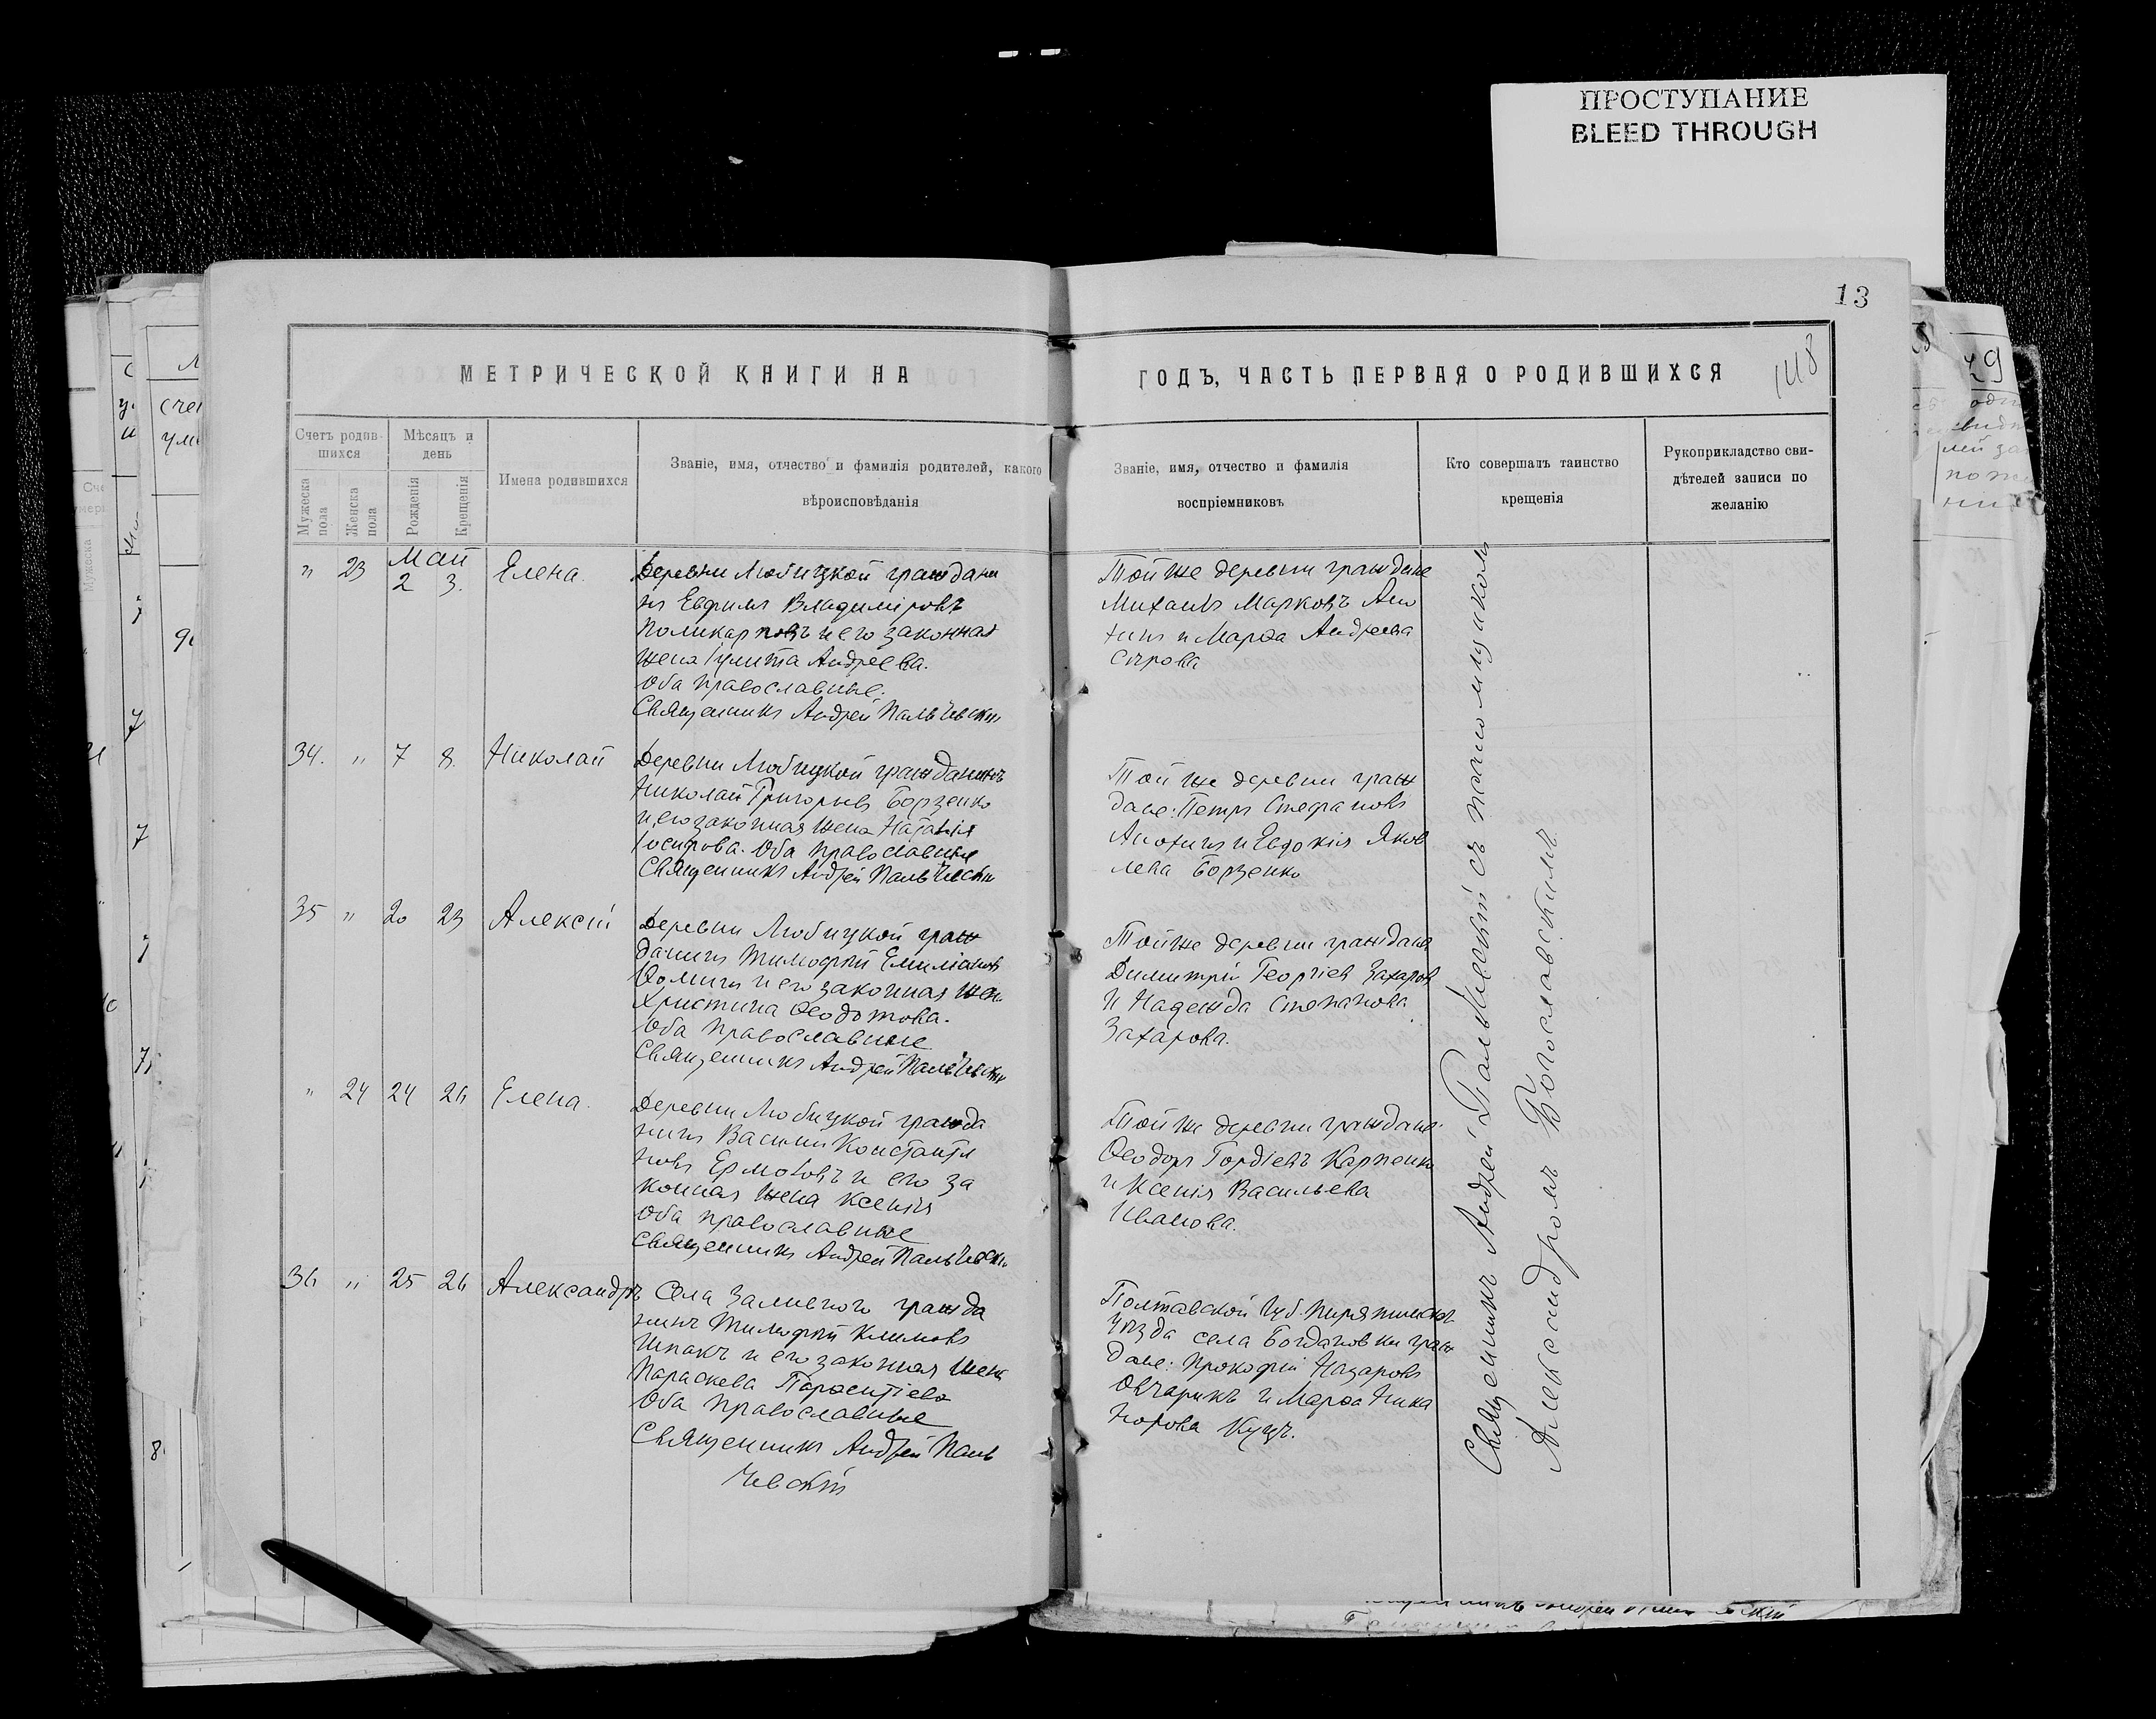 ПРОСТУПАНИЕ
BLEED THROUGH
13
148
МЕТРИЧЕСКОЙ КНИГИ НА
ГОДЪ, ЧАСТЬ ПЕРВАЯ О РОДИВШИХСЯ
Счетъ родив-
шихся
Мужеска пола
Женска пола
Мѣсяцъ и
день
Рожденія
Крещенія
Имена родившихся
Званіе, имя, отчество и фамилія родителей, какого
вѣроисповѣданія
Званіе, имя, отчество и фамилія
воспріемниковъ
Кто совершалъ таинство
крещенія
Рукоприкладство сви-
дѣтелей записи по
желанію
Май
" 23 2 3. Елена.
Деревни Любицкой граждани
нъ Евфимъ Владиміровъ
Поликарповъ и его законная
жена Іулита Андреева.
Оба православные.
Священникъ Андрей Пальчевскій
Той же деревни граждане
Михаилъ Марковъ Ано
хинъ и Марѳа Андреева
34. " 7 8. Николай
Деревни Любицкой гражданинъ
Николай Григорьевъ Борзенко
и его законная жена Наталія
Іосифова. Оба православные
Священникъ Андрей Пальчевскій
Той же деревни граж
дане: Петръ Стефановъ
Анохинъ и Евдокія Яков
лева Борзенко
35 " 20 23 Алексій
Деревни Любицкой граж
данинъ Тимофей Емиліановъ
Ѳоминъ и его законная жена
Христина Ѳеодотова.
Оба православные
Священникъ Андрей Пальчевскій
Той же деревни граждане
Димитрій Георгіевъ Захаровъ
и Надежда Степанова
Захарова.
" 24 24 26 Елена.
Деревни Любицкой гражда
нинъ Василій Константи
новъ Ермоловъ и его за
конная жена Ксенія
Оба православные
Священникъ Андрей Пальчевскій
Той же деревни граждане
Ѳеодоръ Гордіевъ Карпенко
и Ксенія Васильева
Иванова.
36 " 25 26 Александръ
Села Заливного гражда
нинъ Тимофей Климовъ
Шпакъ и его законная жена
Параскева
Оба православные
Священникъ Андрей Паль
чевскій
Полтавской губ. Пирятинскаго
уѣзда села Богдановки граж
дане: Прокофій Назаровъ
Овчарикъ и Марѳа Ника
норова Куцъ.
Священникъ Андрей Пальчевскій съ псаломщикомъ
Александромъ Богославскимъ